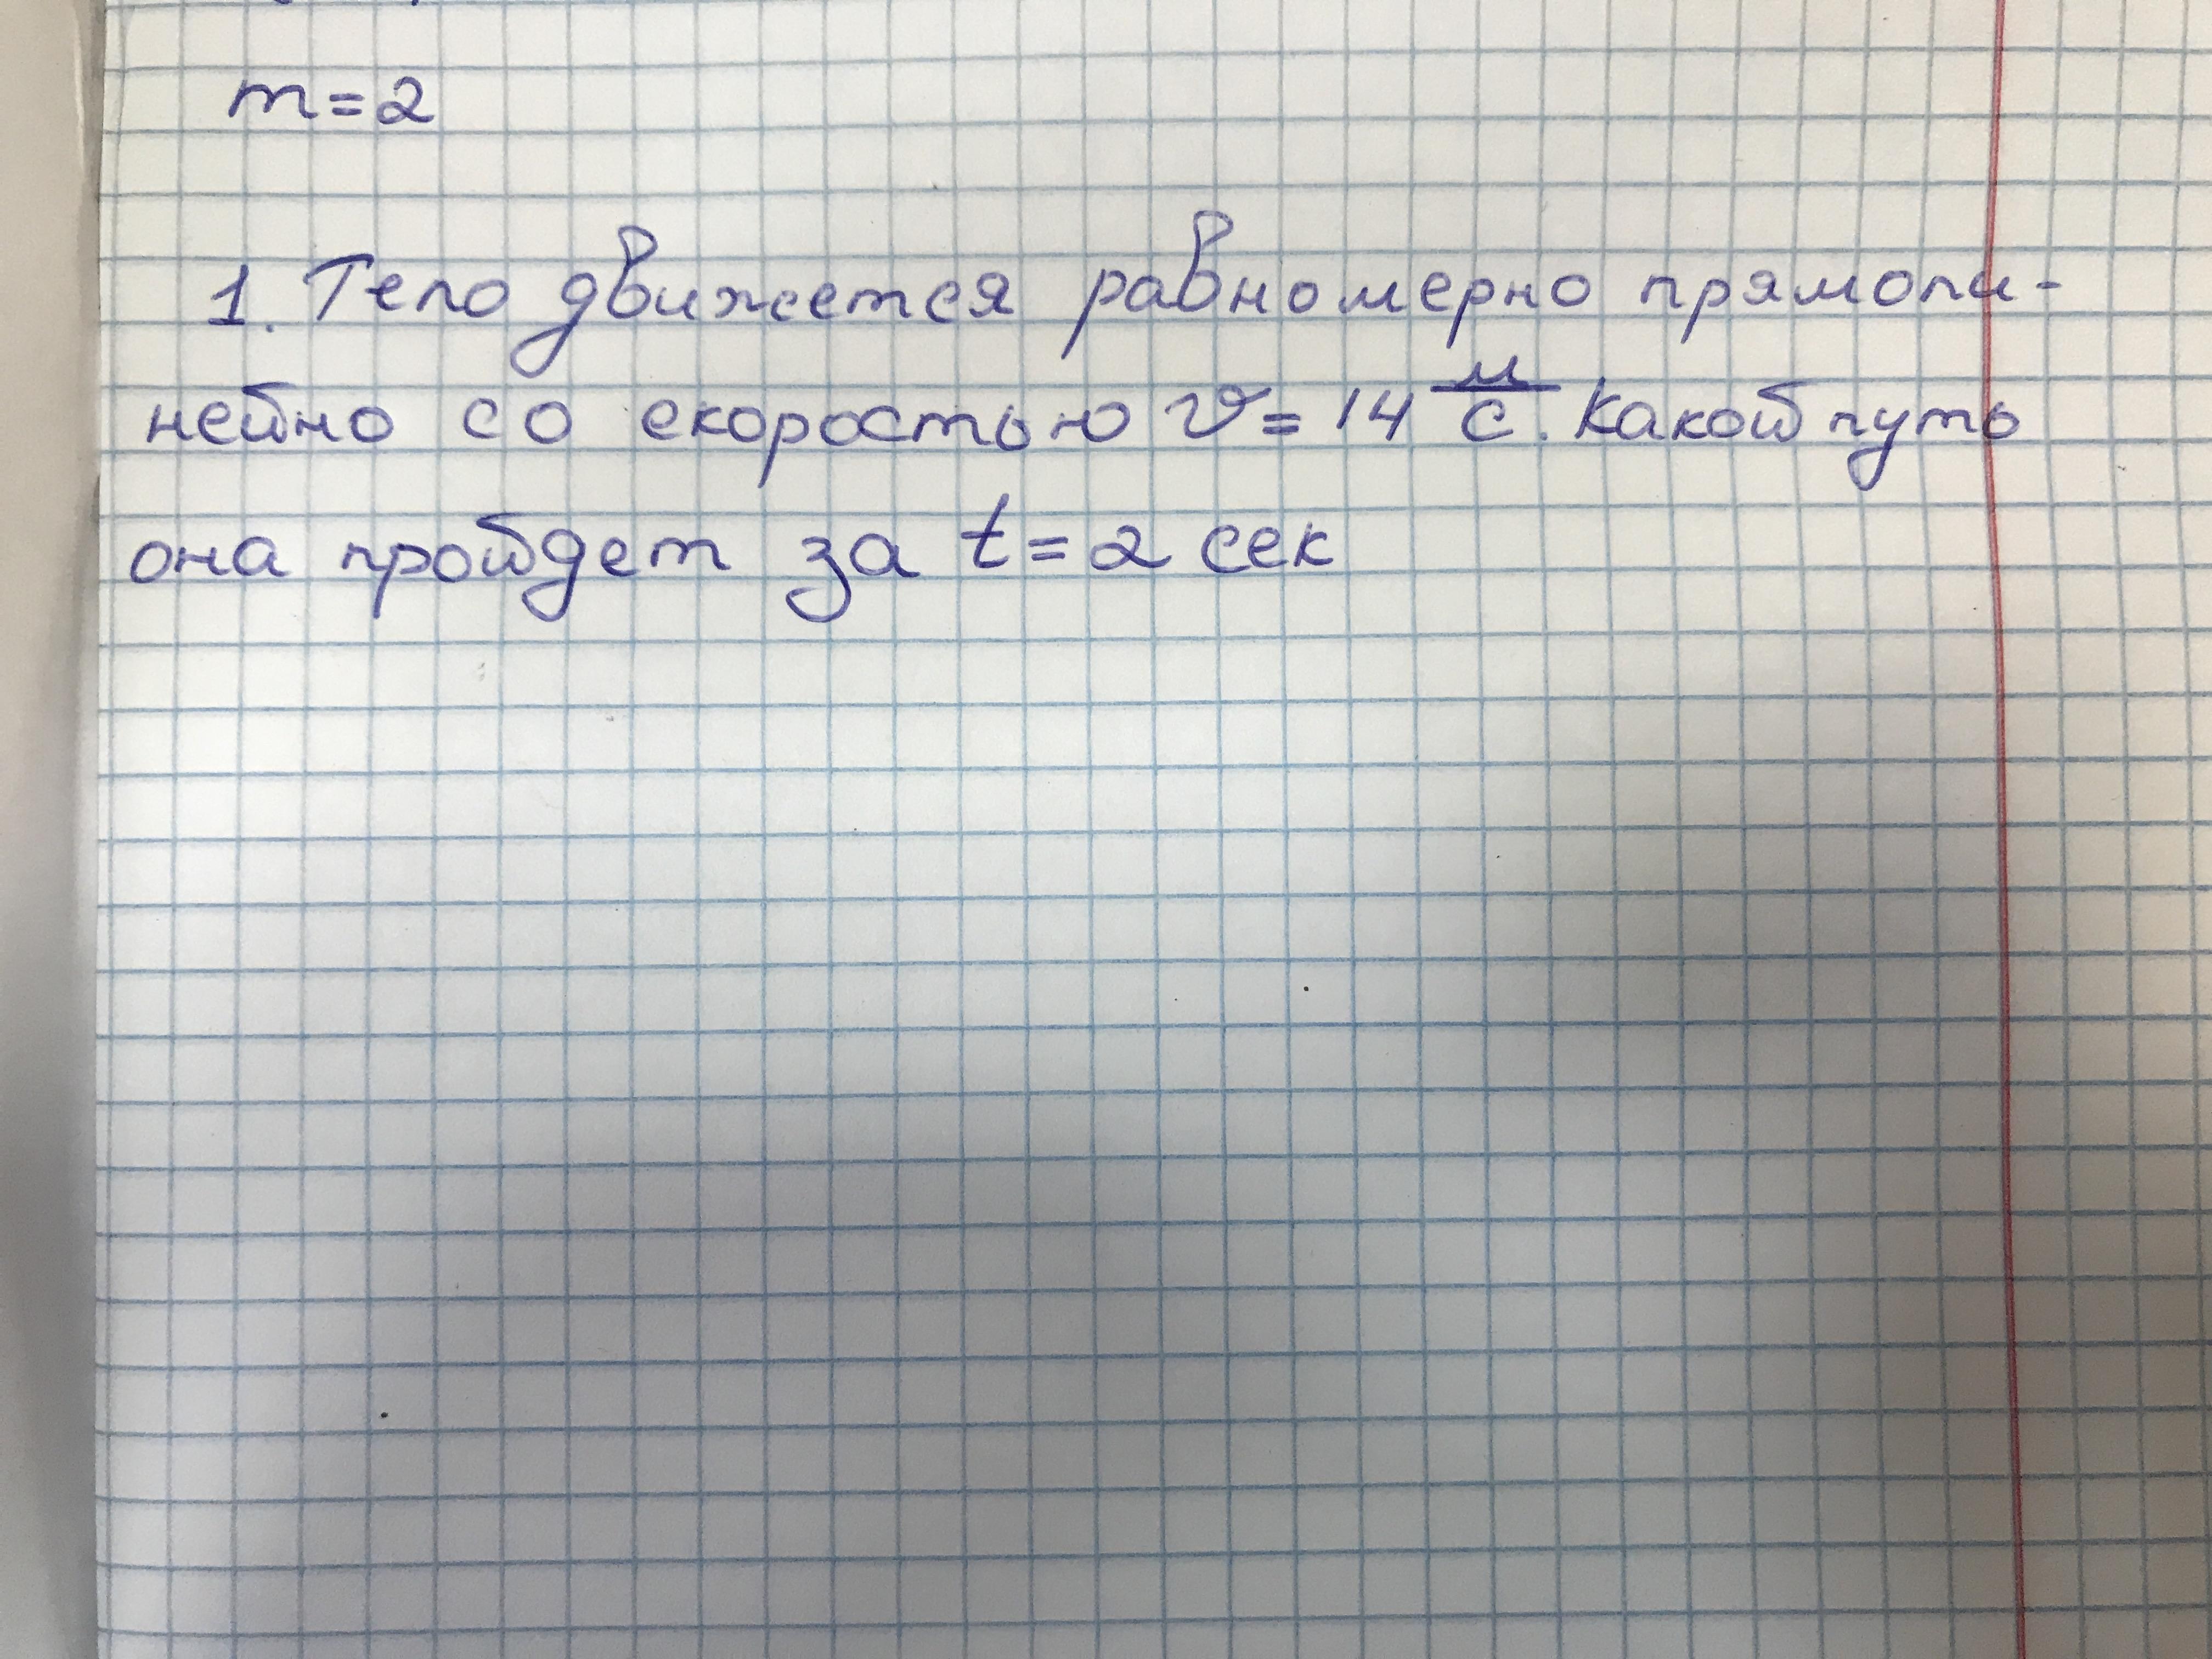 m=2
1. Тело движется равномерно прямоли-
нейно со скоростью v=14 м/с. Какой путь
она пройдет за t=2 сек